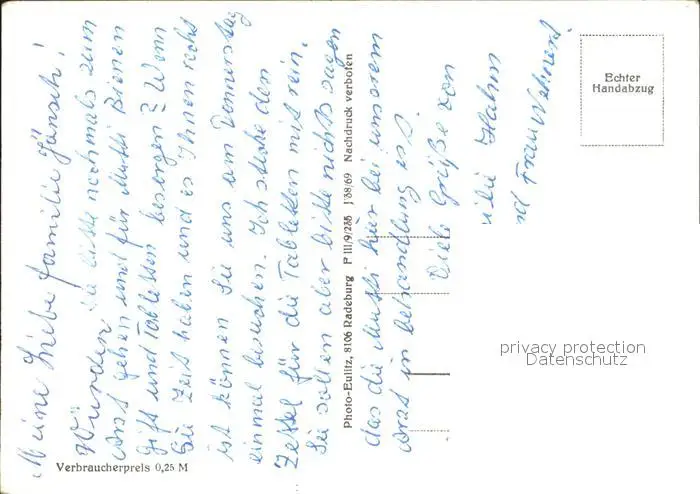 Meine Liebe Familie Jänsch!
Würden Sie bitte nochmals zum
Arzt gehen und für Mutti Bienen
gift und Tabletten besorgen? Wenn
Sie Zeit haben und es Ihnen recht
ist können Sie uns am Donnerstag
einmal besuchen. Ich stecke den
Zettel für die Tabletten mit rein.
Sie sollen aber bitte nichts sagen
das die Mutti hier bei unserem
Arzt in behandlung ist.
Viele Grüße von
Hahm
Frau Wehnert
Photo-Eulitz, 8106 Radeburg P III/9/235 J 38/69 Nachdruck verboten
Echter
Handabzug
Verbraucherpreis 0,25 M
privacy protection
Datenschutz